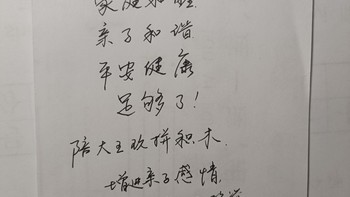 亲子和谐
平安健康
足够了!
陪大王玩拼积木.
增进亲子感情.